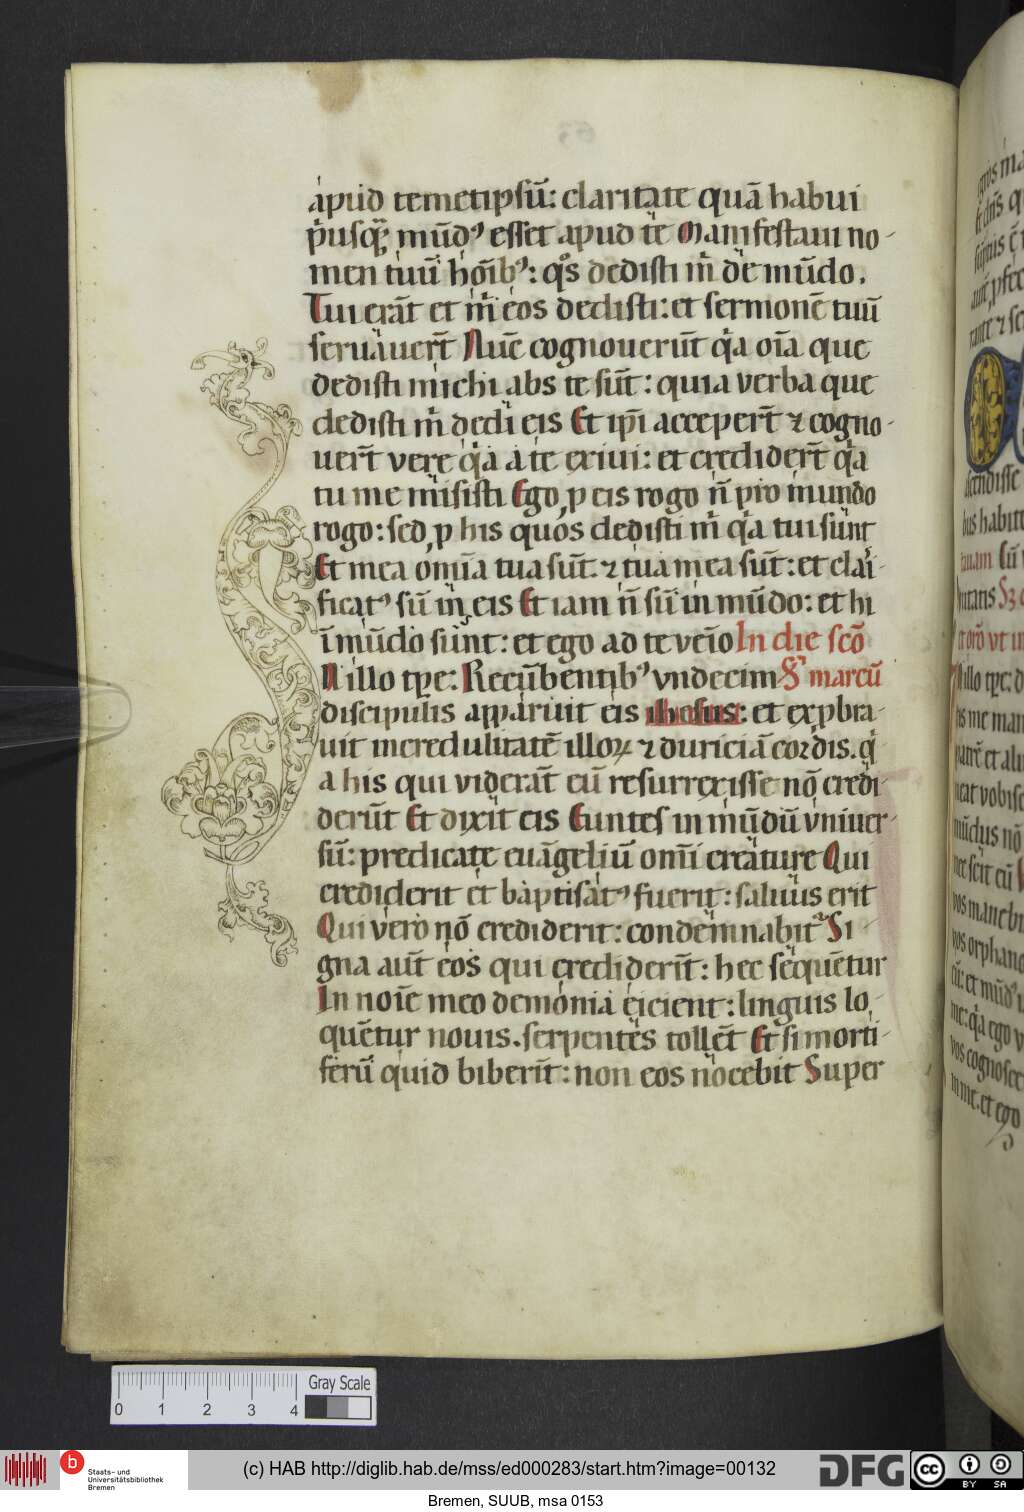 apud temetipsū: claritate quā habui
p̄usq̄ȝ mūdꝰ esset apud te Manifestaui no-
men tuū hōībꝰ: qͦs dedisti m̄ de mūdo.
Tui erāt et m̄ eos dedisti: et sermonē tuū
seruauerūt Nūc cognouerūt qͣa oīa que
dedisti michi abs te sūt: quia verba que
dedisti m̄ dedi eis Et ipī acceperūt ⁊ cogno-
uerūt vere qͣa a te exiui: et crediderūt qͣa
tu me misisti Ego ꝓ eis rogo n̄ pro mundo
rogo: sed ꝓ his quos dedisti m̄ qͣa tui sunt
Et mea omīa tua sūt. ⁊ tua mea sūt: et clari-
ficatꝰ sū in eis Et iam n̄ sū in mūdo: et hi
ī mūdo sunt: et ego ad te veīo In die scō
N illo tꝑe: Recūbentibꝰ vndecim S̄ marcū
discipulis apparuit eis ihesus: et expbra-
uit incredulitatē illoꝝ ⁊ duriciā cordis. qͥ
a his qui viderāt eū resurrexisse nō credi-
derūt Et dixit eis Euntes in mūdū vniuer-
sū: predicate euāgeliū omī creature Qui
crediderit et baptisatꝰ fuerit: saluus erit
Qui vero nō crediderit: condemnabitᷣ Si-
gna aūt eos qui crediderīt: hec sequētur
In noīe meo demonia eicient: linguis lo-
quētur nouis. serpentes tollēt Et si morti-
ferū quid biberīt: non eos nocebit Super
Gray Scale
0 1 2 3 4
Staats- und
Universitätsbibliothek
Bremen
(c) HAB http://diglib.hab.de/mss/ed000283/start.htm?image=00132
DFG
cc BY SA
Bremen, SUUB, msa 0153